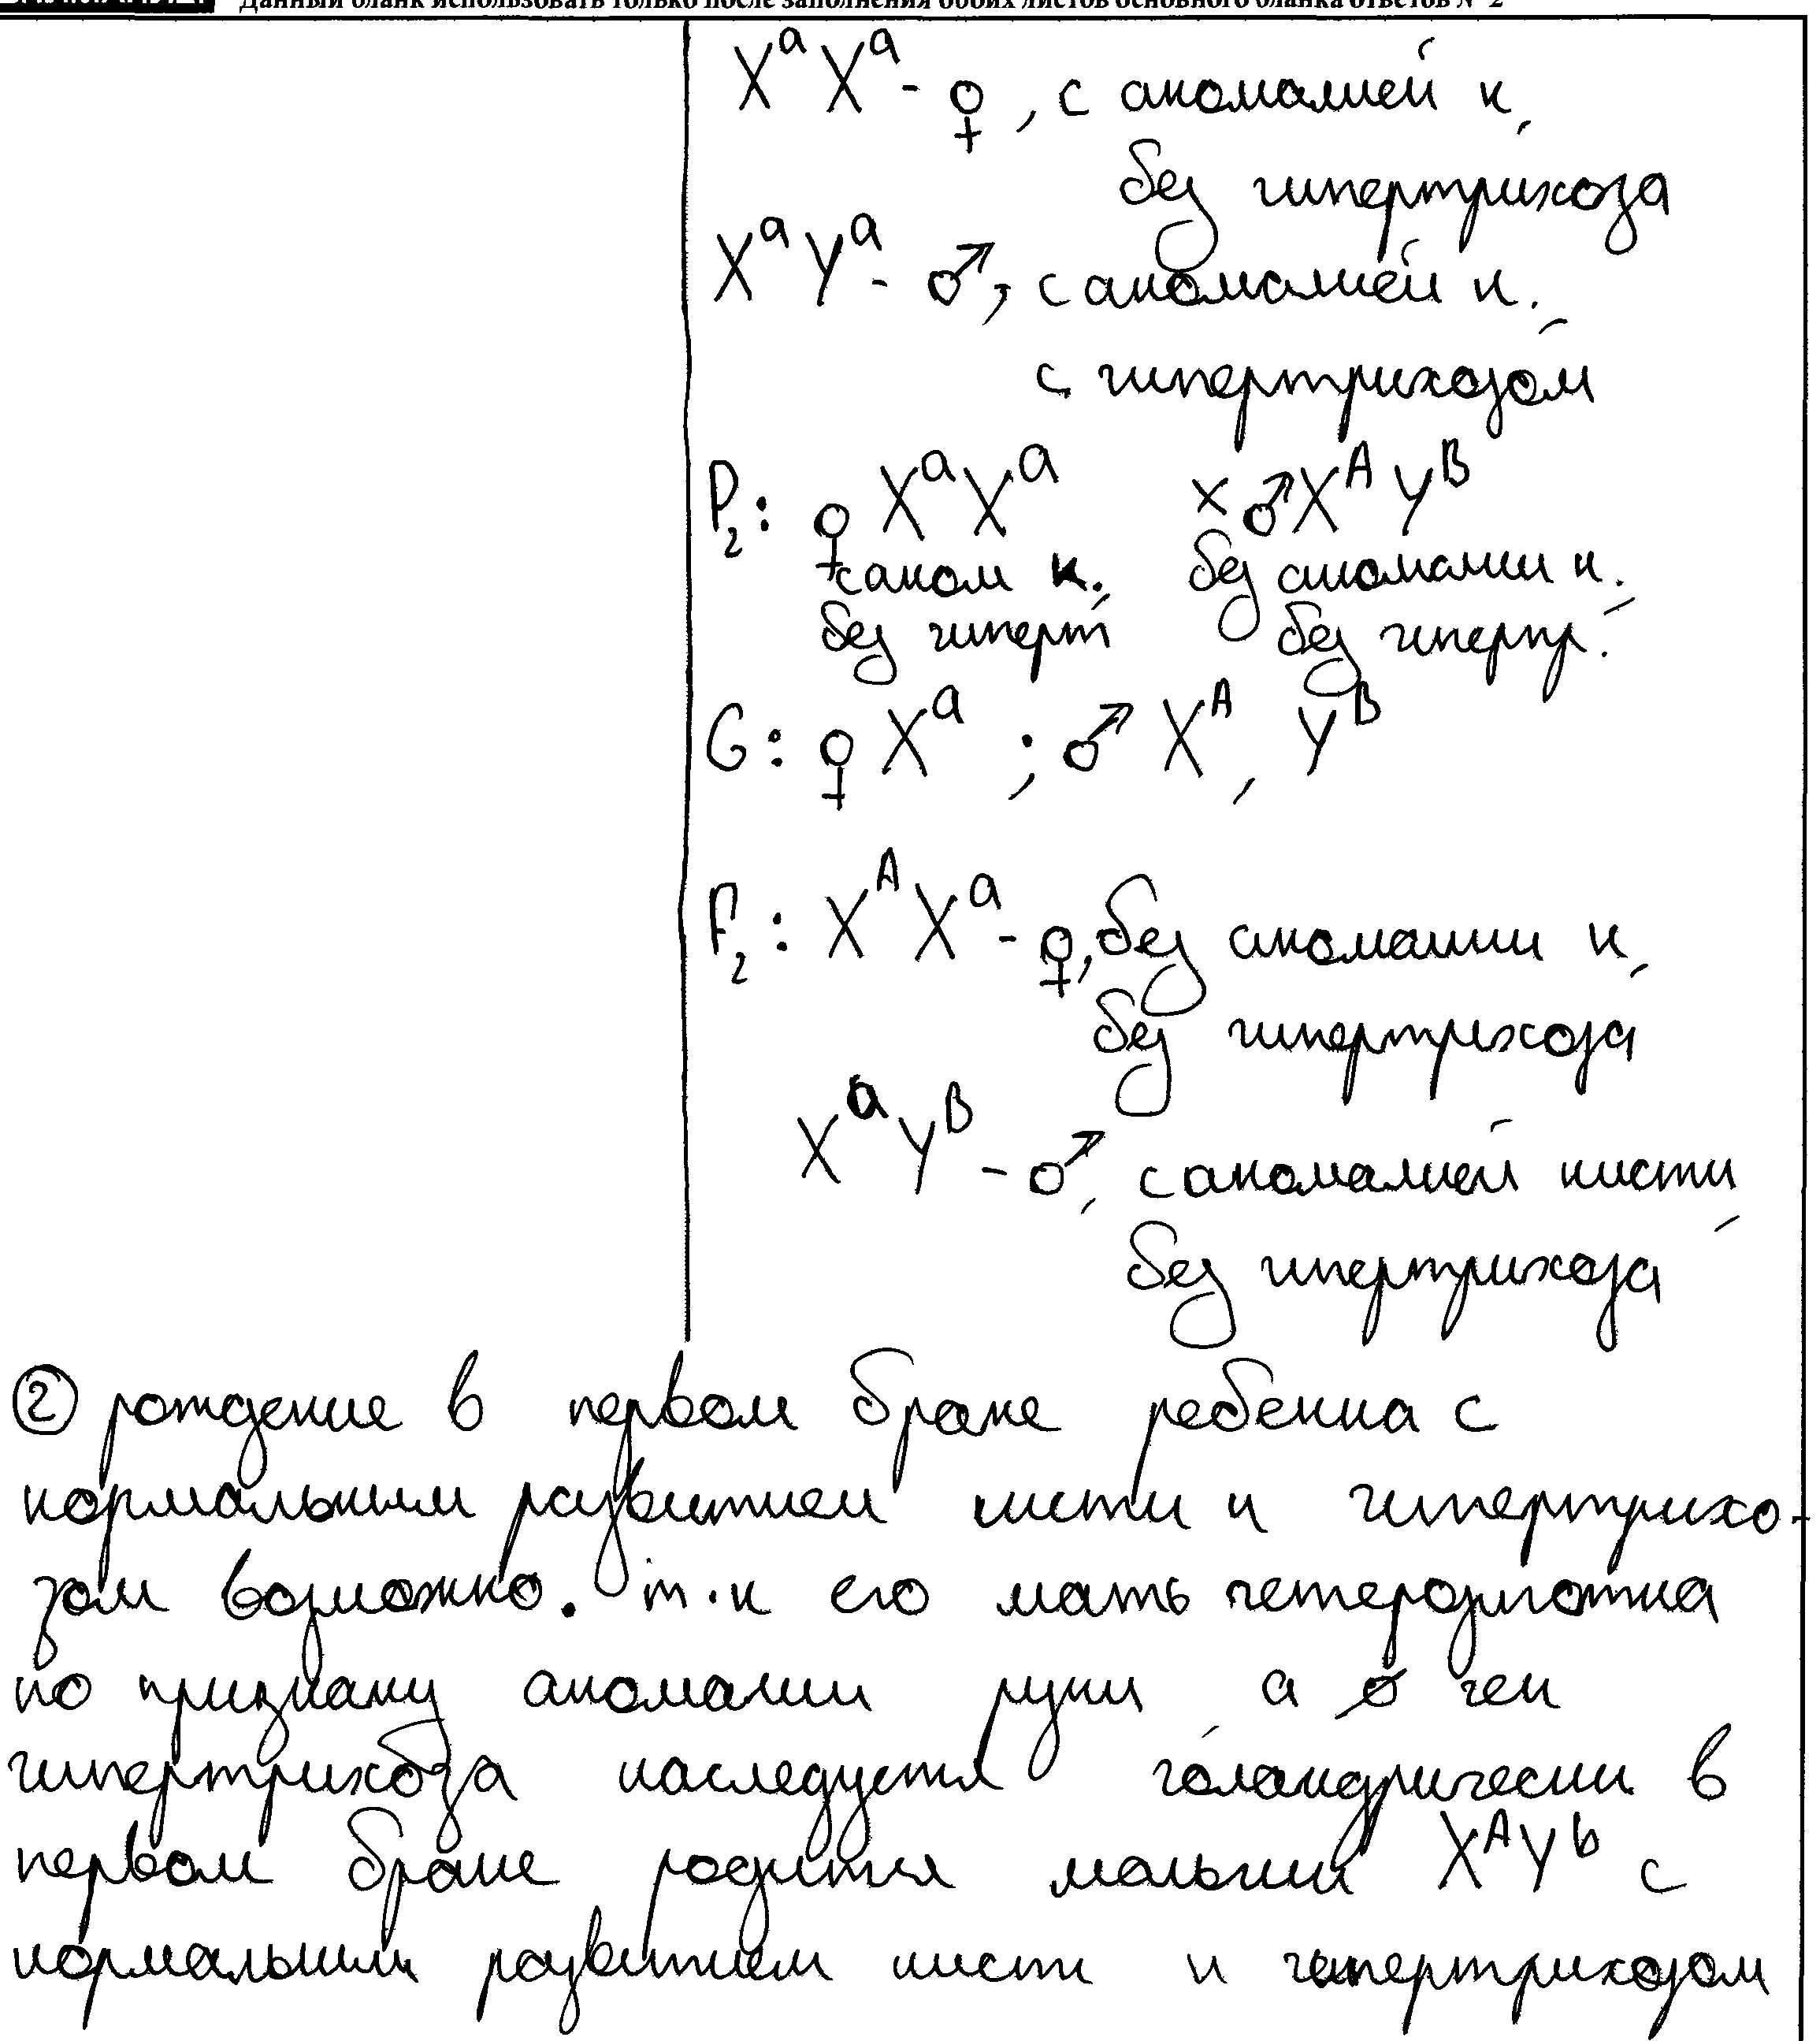 Данный бланк использовать только после заполнения обоих листов основного бланка ответов № 2
XᵃXᵃ - ♀, с аномалией к,
без гипертрихоза
XᵃYᵃ - ♂, с аномалией к.
с гипертрихозом
P₂: ♀ XᵃXᵃ × ♂ XᴬYᴮ
с аном к. без аномалии к.
без гиперт без гипертр.
G: ♀ Xᵃ ; ♂ Xᴬ, Yᴮ
F₂: XᴬXᵃ - ♀, без аномалии к,
без гипертрихоза
XᵃYᴮ - ♂, с аномалией кисти
без гипертрихоза
② рождение в первом браке ребенка с
нормальным развитием кисти и гипертрихо-
зом возможно. т.к его мать гетерозиготна
по признаку аномалии руки а ген
гипертрихоза наследуется голандрически в
первом браке родится мальчик XᴬYᵇ с
нормальным развитием кисти и гипертрихозом